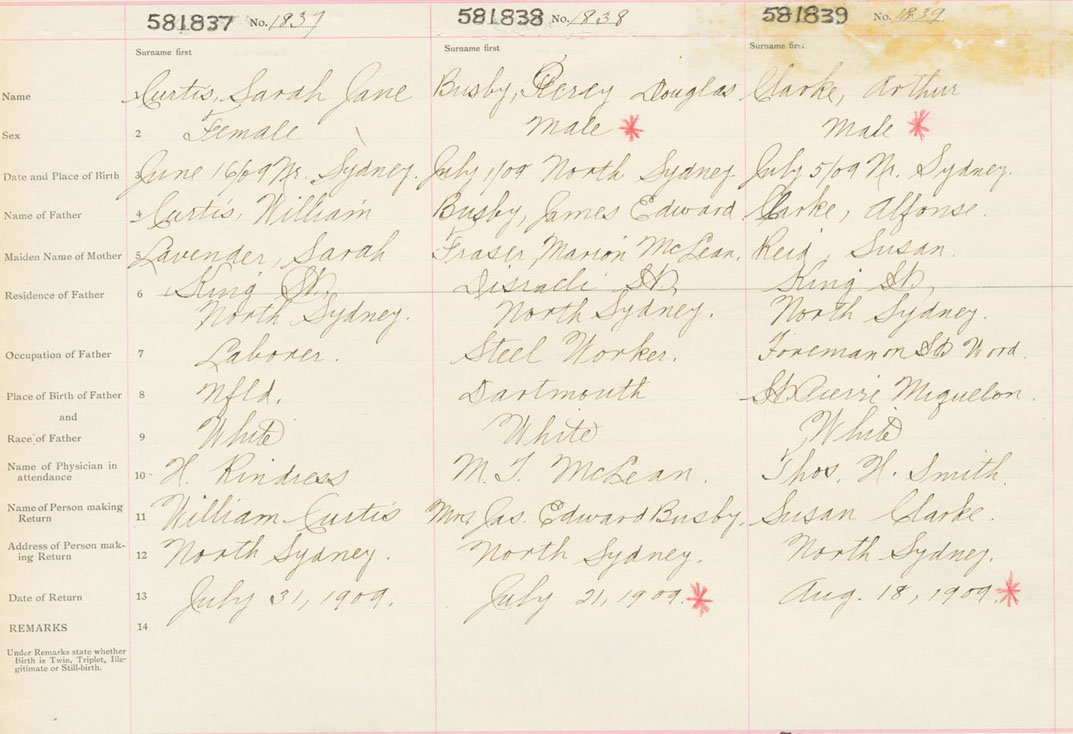 581837 No. 1837
581838 No. 1838
581839 No. 1839
Surname first
Surname first
Surname first
Name 1 Curtis, Sarah Jane
Busby, Percy Douglas
Clarke, Arthur
Sex 2 Female
Male
Male
Date and Place of Birth 3 June 16/09 Nr. Sydney.
July 1/09 North Sydney
July 5/09 Nr. Sydney.
Name of Father 4 Curtis, William
Busby, James Edward
Clarke, Alfonse.
Maiden Name of Mother 5 Lavender, Sarah
Fraser Marion McLean.
Reid, Susan.
Residence of Father 6 King St,
North Sydney.
Disraeli St,
North Sydney.
King St,
North Sydney.
Occupation of Father 7 Laborer.
Steel Worker.
Foreman on
Place of Birth of Father 8 Nfld.
Dartmouth
St Pierre Miquelon.
and
Race of Father 9 White
White
White
Name of Physician in
attendance 10 H. Rindress
M. T. McLean.
Thos. H. Smith.
Name of Person making
Return 11 William Curtis
Mrs Jas. Edward Busby.
Susan Clarke.
Address of Person mak-
ing Return 12 North Sydney.
North Sydney.
North Sydney.
Date of Return 13 July 31, 1909.
July 21, 1909.
Aug. 18, 1909.
REMARKS 14
Under Remarks state whether
Birth is Twin, Triplet, Ille-
gitimate or Still-birth.